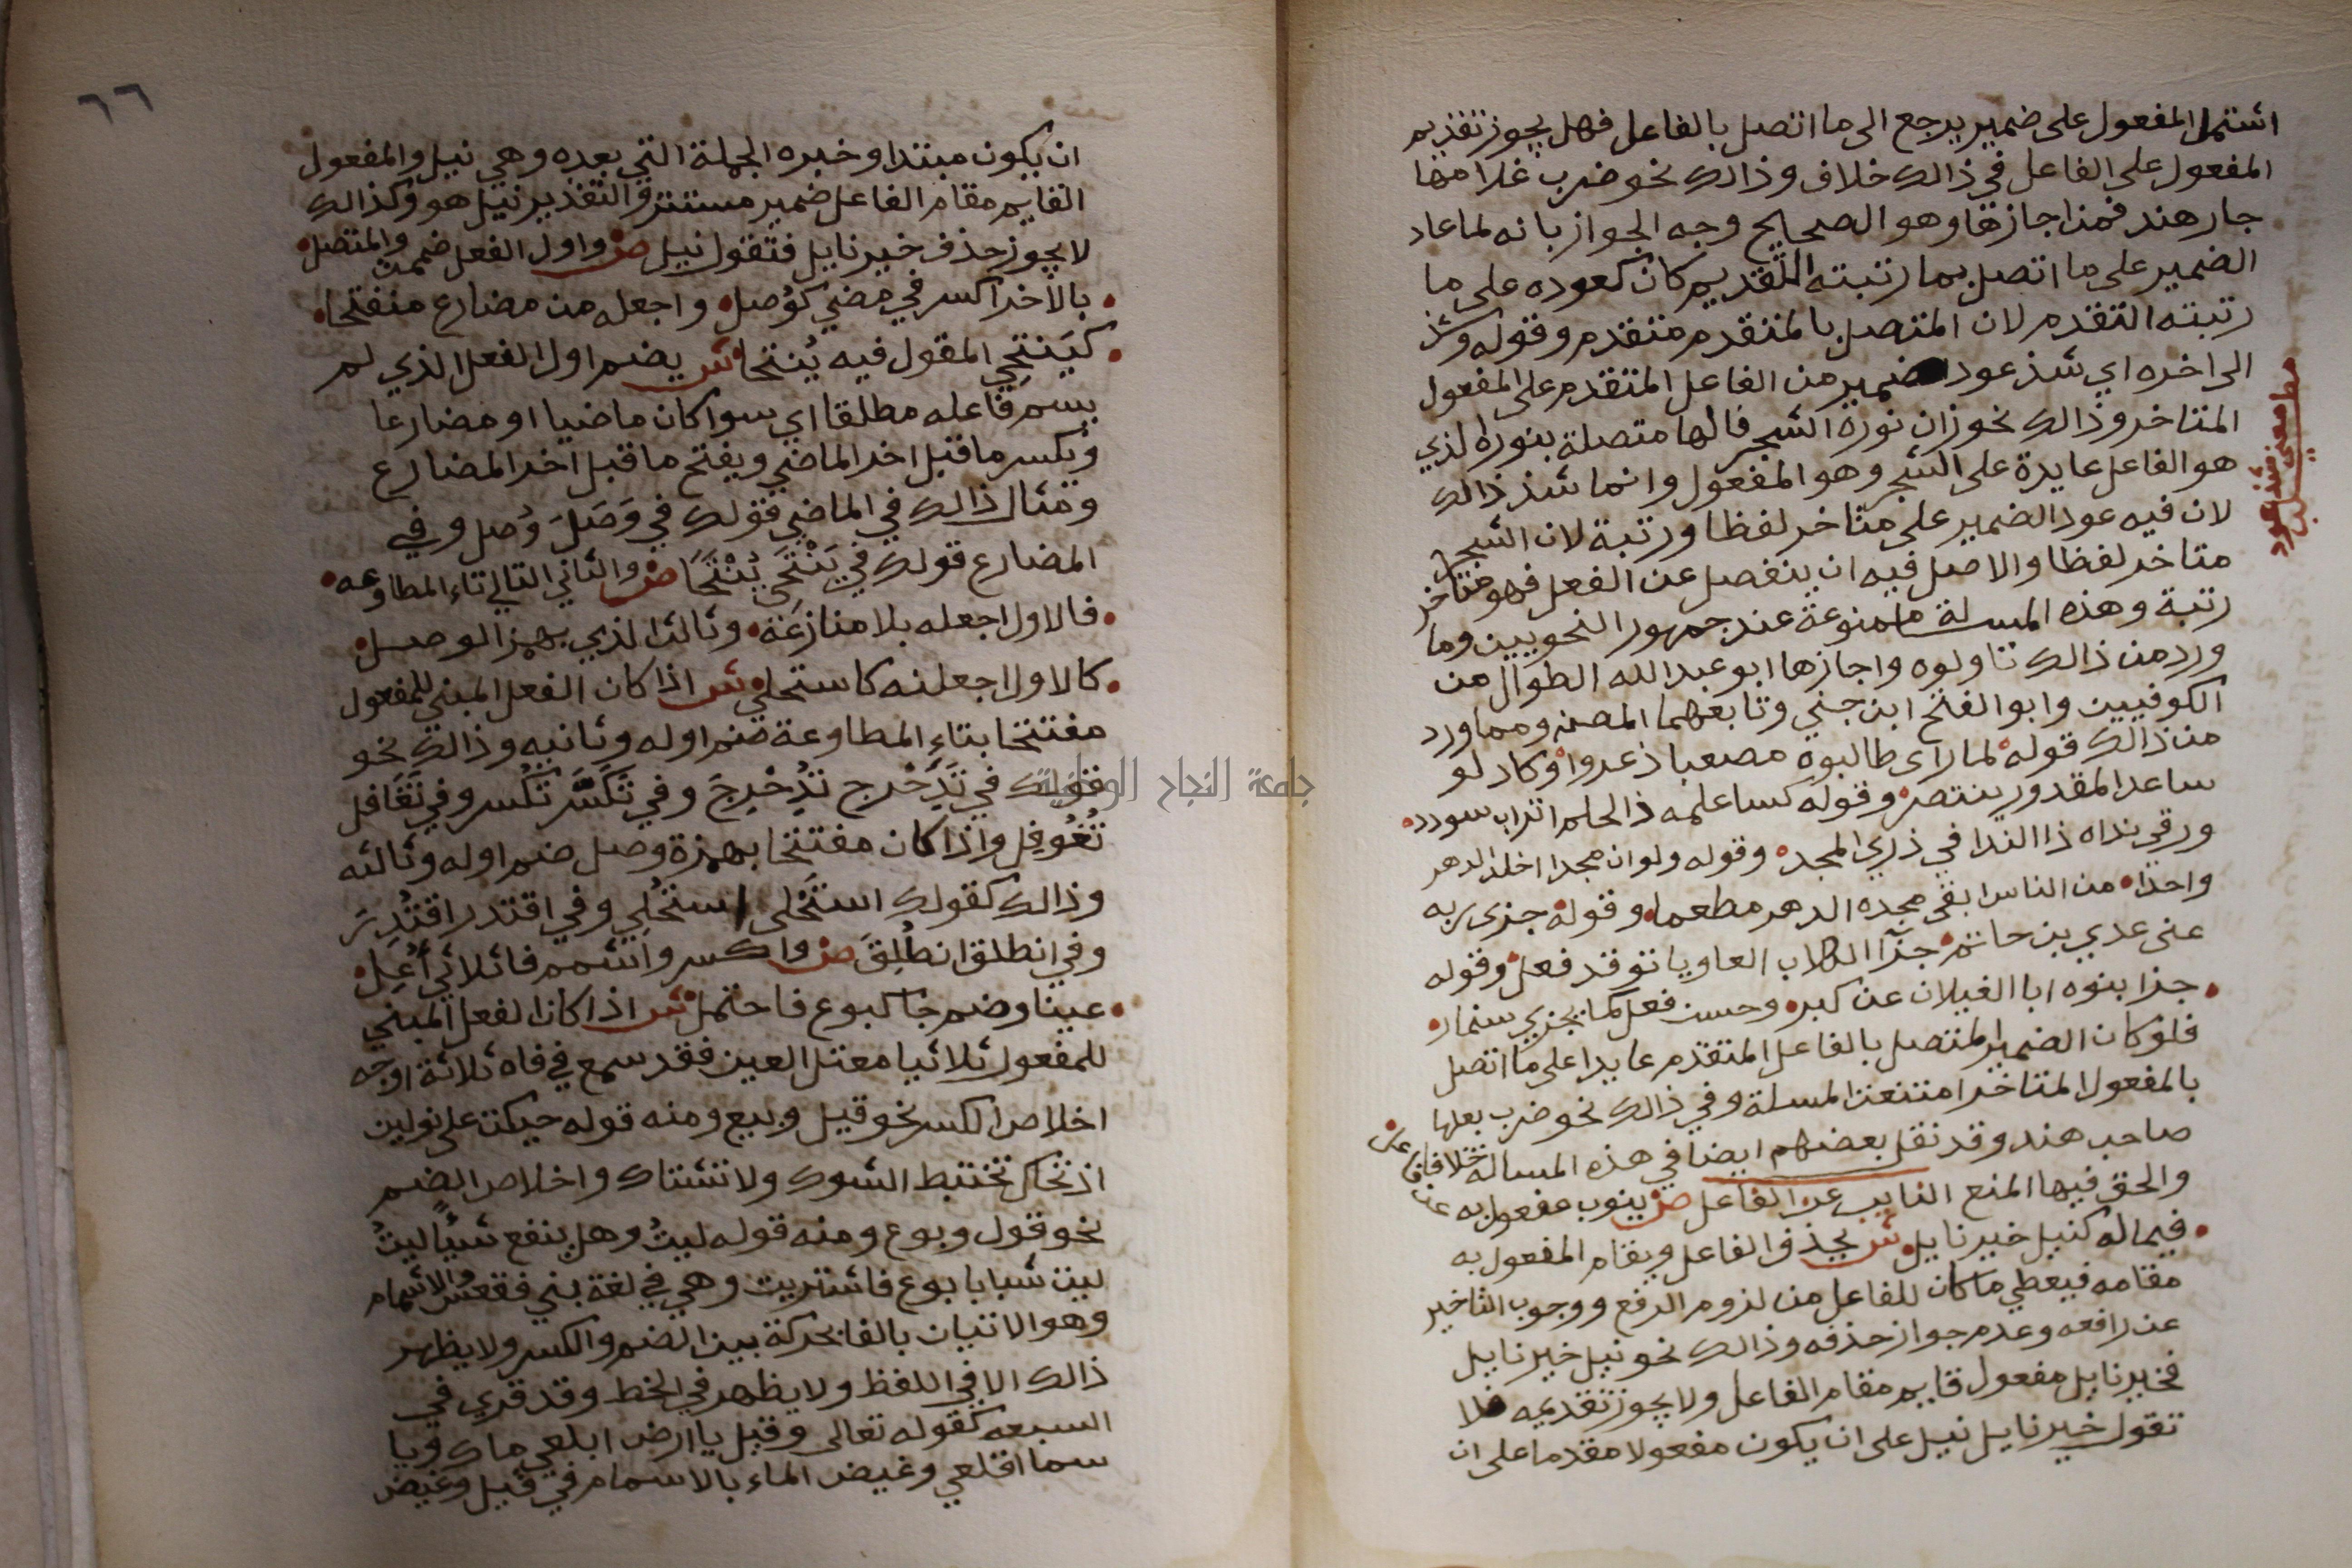 اشتمل المفعول على ضمير يرجع الى ما اتصل بالفاعل فهل يجوز تقديم
المفعول على الفاعل في ذالك خلاف وذالك نحو ضرب غلامها
جار هند فمن اجازها وهو الصحايح وجه الجواز بانه لما عاد
الضمير على ما اتصل بما رتبته التقديم كان كعوده على ما
رتبته التقدم لان المتصل بالمتقدم متقدم وقوله وشذ
الى اخره اي شذ عود ضمير من الفاعل المتقدم على المفعول
المتاخر وذالك نحو زان نوره الشجر فالها متصلة بنور الذي
هو الفاعل عايدة على الشجر وهو المفعول وانما شذ ذالك
لان فيه عود الضمير على متاخر لفظا ورتبة لان الشجر
متاخر لفظا والاصل فيه ان ينفصل عن الفعل فهو متاخر
رتبة وهذه المسلة ممنوعة عند جمهور النحويين وما
ورد من ذالك تاولوه واجازها ابو عبد الله الطوال من
الكوفيين وابو الفتح ابن جني وتابعهما المصنف ومما ورد
من ذالك قوله لما راى طالبوه مصعبا ذعروا وكاد لو
ساعد المقدور ينتصر وقوله كسا علمه ذا الحلم اثواب سودد
ورقى نداه ذا الندا في ذرى المجد وقوله ولو ان مجدا اخلد الدهر
واحدا من الناس ابقى مجده الدهر مطعما وقوله جزى ربه
عنى عدي بن حاتم جزآ الكلاب العاويات وقد فعل وقوله
جزا بنوه ابا الغيلان عن كبر وحسن فعل كما يجزي سنمار
فلو كان الضمير المتصل بالفاعل المتقدم عايدا على ما اتصل
بالمفعول المتاخر امتنعت المسلة وفي ذالك نحو ضرب بعلها
صاحب هند وقد نقل بعضهم ايضا في هذه المسالة خلافا
والحق فيها المنع النايب عن الفاعل ص ينوب مفعول به عن
فيما له كنيل خير نايل ش يحذف الفاعل ويقام المفعول به
مقامه فيعطي ما كان للفاعل من لزوم الرفع ووجوب التاخير
عن رافعه وعدم جواز حذفه وذالك نحو نيل خير نايل
فخير نايل مفعول قايم مقام الفاعل ولا يجوز تقديمه فلا
تقول خير نايل نيل على ان يكون مفعولا مقدما على ان
٦٦
ان يكون مبتدا وخبره الجملة التي بعده وهي نيل والمفعول
القايم مقام الفاعل ضمير مستتر والتقدير نيل هو وكذالك
لا يجوز حذف خير نايل فتقول نيل ص واول الفعل ضممن والمتصل
بالاخر اكسر في مضي كوُصل واجعله من مضارع منفتحا
كيَنتحِي المقول فيه يُنتحا ش يضم اول الفعل الذي لم
يسم فاعله مطلقا اي سوا كان ماضيا او مضارعا
ويكسر ما قبل اخر الماضي ويفتح ما قبل اخر المضارع
ومثال ذالك في الماضي قولك في وَصَلَ وُصل وفي
المضارع قولك في يَنْتَحَِى يُنْتَحَا ص والثاني التالي تاء المطاوعه
فالاول اجعله بلا منازعَة وثالث الذي بهمز الوصل
كالاول اجعلنه كاستحلي ش اذا كان الفعل المبني للمفعول
مفتتحا بتاءِ المطاوعة ضم اوله وثانيه وذالك نحو
قولك في تَدَحْرج تدُحْرِجَ وفي تَكَسَّر تكُسر وفي تَغَافل
تُغُوفِل واذا كان مفتتحا بهمزة وصل ضم اوله وثالثه
وذالك كقولك استَحْلى استحُلِي وفي اقتدر اقتُدِرَ
وفي انطلق انطُلِقَ ص واكسر واشمم فا ثلاثي أُعِل
عينا وضم جا كبوع فاحتمل ش اذا كان الفعل المبني
للمفعول ثلاثيا معتل العين فقد سمع في فاه ثلاثة اوجه
اخلاص الكسر نحو قيل وبيع ومنه قوله حيكت على نولين
اذ تحاك تختبط الشوك ولا تشتاك واخلاص الضم
نحو قول وبوع ومنه قوله ليتُ وهل ينفع شيًا ليتُ
ليت شبابا بوع فاشتريت وهي في لغة بني فقعس والاشمام
وهو الاتيان بالفا بحركة بين الضم والكسر ولا يظهر
ذالك الا في اللفظ ولا يظهر في الخط وقد قري في
السبعه كقوله تعالى وقيل يا ارض ابلعي ماك ويا
سما اقلعي وغيض الماء بالاسمام في قيل وغيض
جامعة النجاح الوطنية